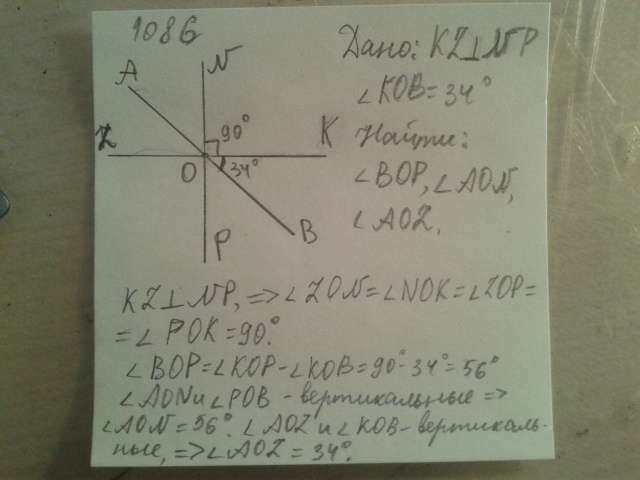 1086
Дано: KZ⊥NP
∠KOB=34°
Найти:
∠BOP, ∠AON,
∠AOZ.
A
N
Z
90°
K
O
34°
P
B
KZ⊥NP, => ∠ZON=∠NOK=∠ZOP=
=∠POK=90°.
∠BOP=∠KOP-∠KOB=90°-34°=56°
∠AON и ∠POB - вертикальные =>
∠AON=56°. ∠AOZ и ∠KOB- вертикаль-
ные, => ∠AOZ=34°.